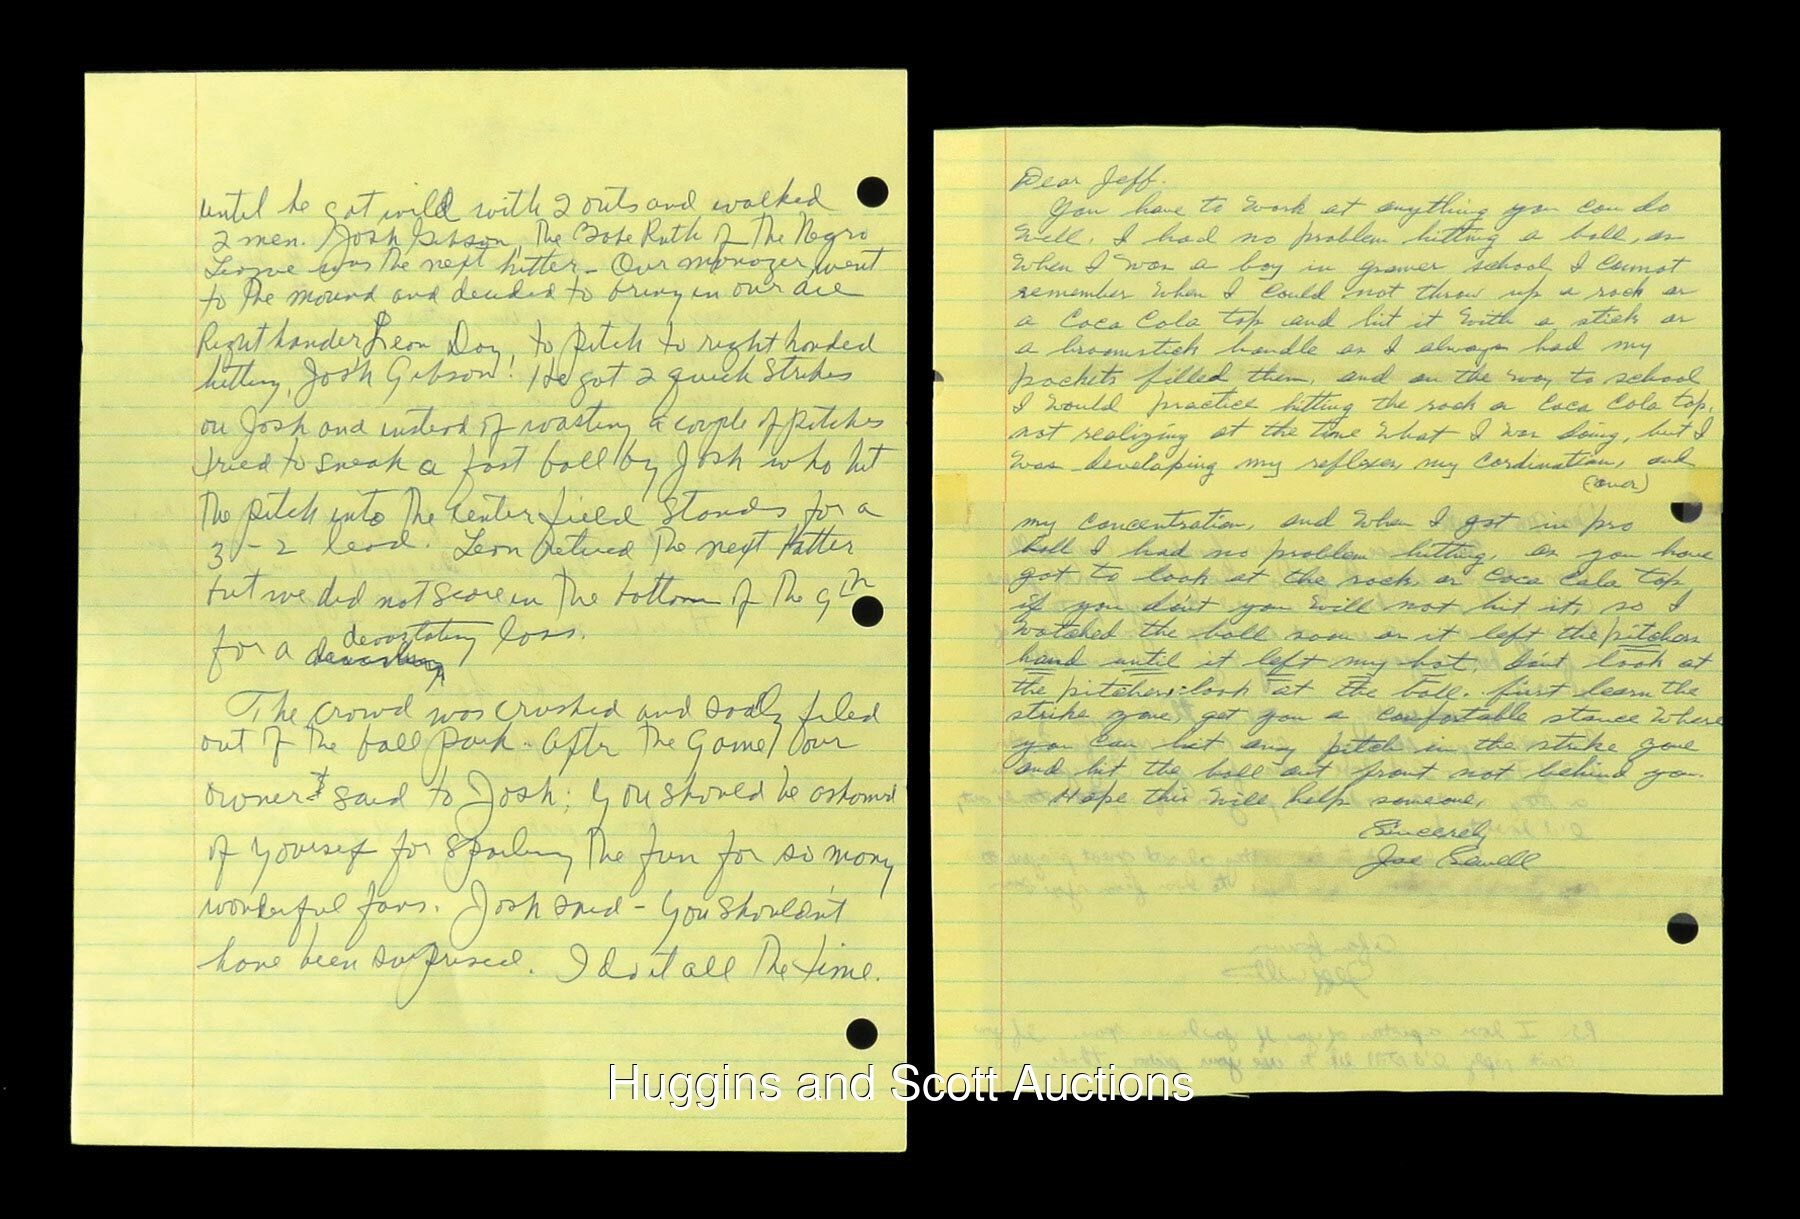 until he got wild with 2 outs and walked
2 men. Josh Gibson, The Babe Ruth of The Negro
League was The next hitter - Our manager, went
to The mound and decided to bring in our ace
Right hander Leon Day, to pitch to right handed
hitting, Josh Gibson! He got 2 quick strikes
on Josh and instead of wasting a couple of pitches
tried to sneak a fast ball by Josh who hit
The pitch into The center field stands for a
3-2 lead. Leon retired The next batter
but we did not score in The bottom of The 9th
for a devastating loss.
The crowd was crushed and sadly filed
out of The ball park. After The Game, our
owner said to Josh; You should be ashamed
of yourself for spoiling The fun for so many
wonderful fans. Josh said - You shouldn't
have been surprised. I do it all The time.
Dear Jeff.
You have to work at anything you can do
well. I had no problem hitting a ball, as
when I was a boy in gramer school I cannot
remember when I could not throw up a rock or
a Coca Cola top and hit it with a stick or
a broomstick handle as I always had my
pockets filled them, and on the way to school
I would practice hitting the rock or Coca Cola top,
not realizing at the time what I was doing, but I
was developing my reflexes, my cordination, and
(over)
my concentration, and when I got in pro
ball I had no problem hitting, as you have
got to look at the rock or Coca Cola top
if you don't you will not hit it, so I
watched the ball soon as it left the pitchers
hand until it left my bat, don't look at
the pitchers look at the ball. first learn the
strike zone, get you a comfortable stance where
you can hit any pitch in the strike zone
and hit the ball out front not behind you.
Hope this will help someone,
Sincerely
Joe Sewell
Huggins and Scott Auctions